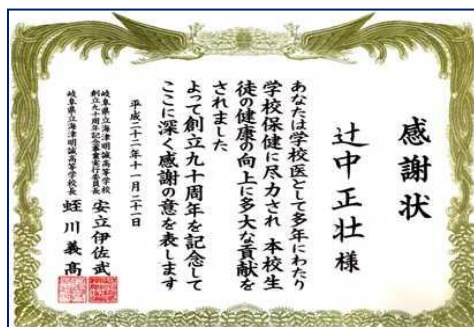 感謝状
辻中正壮様
あなたは学校医として多年にわたり
学校保健に尽力され 本校生
徒の健康の向上に多大な貢献を
されました
よって創立九十周年を記念して
ここに深く感謝の意を表します
平成二十二年十一月二十一日
岐阜県立海津明誠高等学校
創立九十周年記念事業実行委員長 安立伊佐武
岐阜県立海津明誠高等学校長 蛭川義高